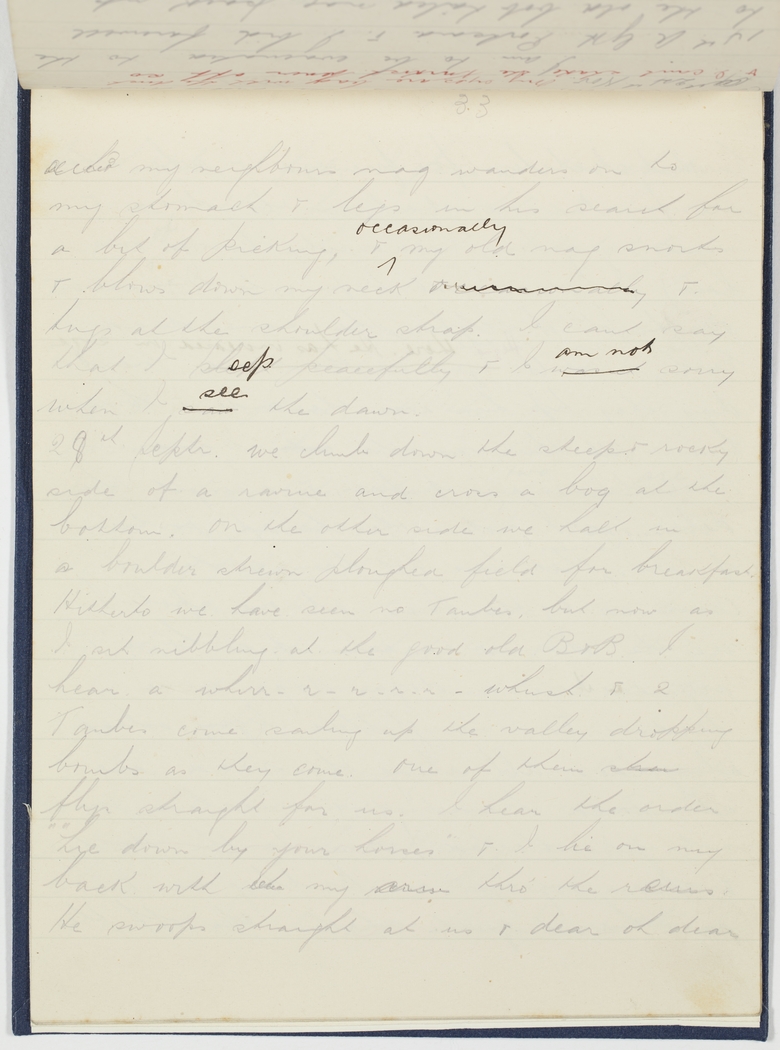 33
my neighbours nag wanders on to
my stomach & legs in his search for
a bit of picking, occasionally & my old nag snorts
& blows down my neck occasionally &
tugs at the shoulder strap. I cant say
that I sleep peacefully & I am not sorry
when I see the dawn.
28th Septr. we climb down the steep & rocky
side of a ravine and cross a bog at the
bottom. On the other side we halt in
a boulder strewn ploughed field for breakfast.
Hitherto we have seen no Taubes, but now as
I sit nibbling at the good old B & B I
hear a whirr-r-r-r-r- whilst & 2
Taubes come sailing up the valley dropping
bombs as they come. One of them
flys straight for us. I hear the order
"Lie down by your horses" & I lie on my
back with my arm thro' the reins.
He swoops straight at us & dear oh dear